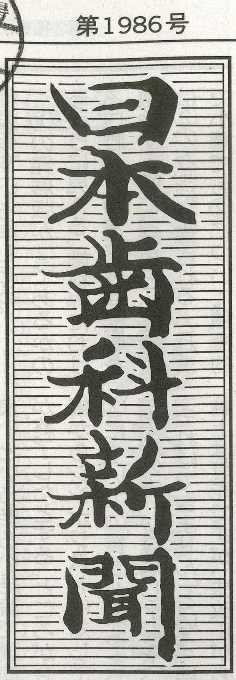 第1986号
日本歯科新聞